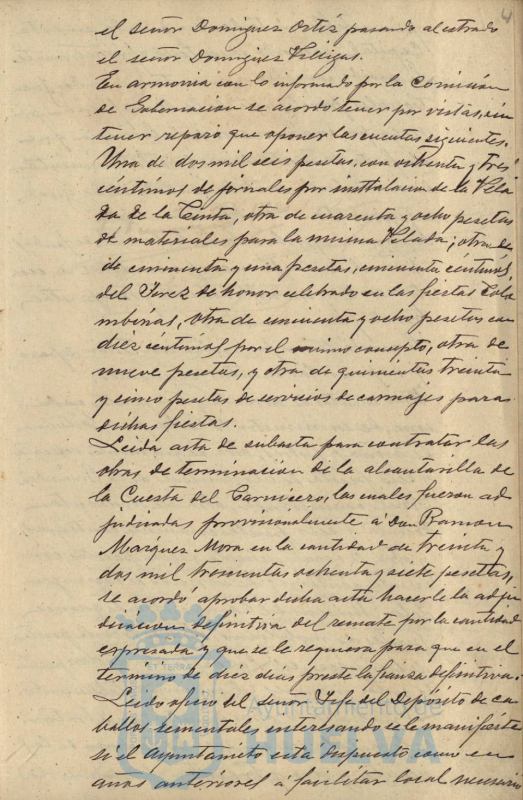 4
el señor Dominguez Ortiz pasando al estrado
el señor Dominguez Villegas.
En armonia con lo informado por la Comisión
de Gobernacion se acordó tener por vistas, sin
tener reparo que oponer las cuentas siguientes.
Una de dos mil seis pesetas, con ochenta y tres
céntimos de jornales por insttalacion de la Vela
da de la Cinta, otra de cuarenta y ocho pesetas
de materiales para la misma Velada; otra de
de cincuenta y una pesetas, cincuenta céntimos,
del Jerez de honor celebrado en las fiestas Colo
mbinas, otra de cincuenta y ocho pesetas con
diez céntimos por el mismo concepto, otra de
nueve pesetas, y otra de quinientas treinta
y cinco pesetas de servicios de carruajes para
dichas fiestas.
Leida acta de subasta para contratar las
obras de terminacion de la alcantarilla de
la Cuesta del Carnicero, las cuales fueron ad
judicadas provisionalmente á Don Ramon
Marquez Mora en la cantidad de treinta y
dos mil trescientas ochenta y siete pesetas,
se acordo aprobar dicha acta hacerle la adju
dicacion definitiva del remate por la cantidad
expresada y que se le requiera para que en el
termino de diez dias preste la fianza definitiva.
Leido oficio del señor Jefe del Depósito de ca
ballos sementales interesando se le manifieste
si el Ayuntamiento esta dispuesto como en
años anteriores á facilitar local necesario
Ayuntamiento de
HUELVA